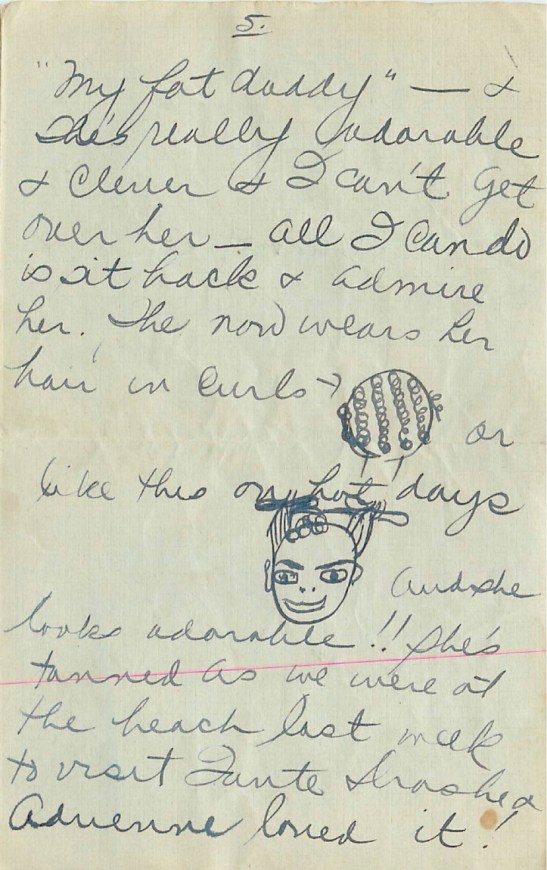 5.
"My fat daddy" — &
she's really adorable
& clever & I can't get
over her — all I can do
is sit back & admire
her. She now wears her
hair in curls → or
like this on hot days
and she
looks adorable!! She's
tanned as we were at
the beach last week
to visit Tante &
Adrienne loved it!